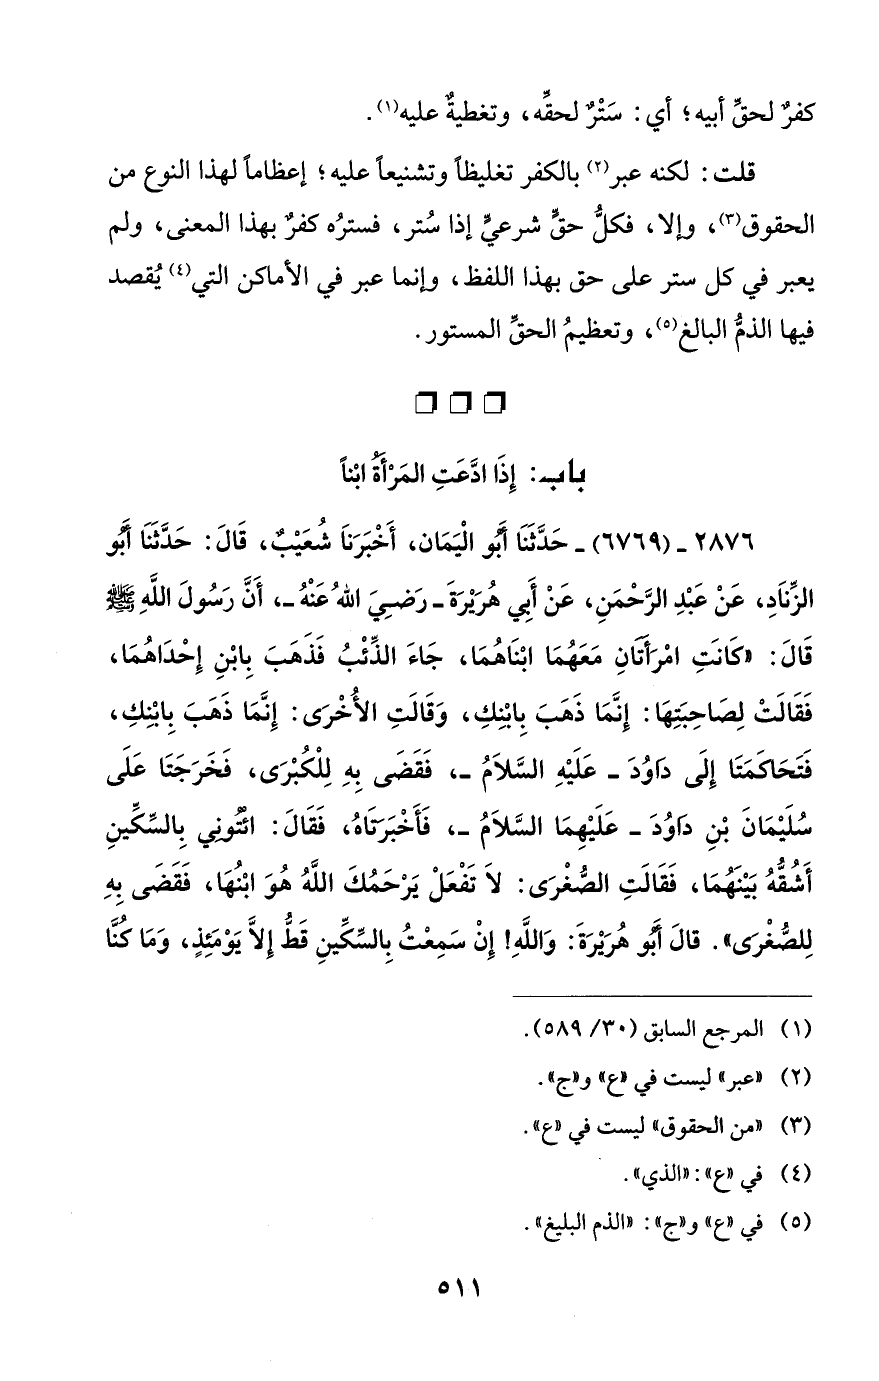 كفرٌ لحقِّ أبيه؛ أي: سَتْرٌ لحقِّه، وتغطيةٌ عليه(١).
قلت: لكنه عبر(٢) بالكفر تغليظاً وتشنيعاً عليه؛ إعظاماً لهذا النوع من
الحقوق(٣)، وإلا، فكلُّ حقٍّ شرعيٍّ إذا سُتر، فسترُه كفرٌ بهذا المعنى، ولم
يعبر في كل ستر على حق بهذا اللفظ، وإنما عبر في الأماكن التي(٤) يُقصد
فيها الذمُّ البالغ(٥)، وتعظيمُ الحقِّ المستور.
باب: إِذَا ادَّعَتِ المَرْأَةُ ابْناً
٢٨٧٦ ـ (٦٧٦٩) ـ حَدَّثَنَا أَبُو الْيَمَان، أَخْبَرَنَا شُعَيْبٌ، قَالَ: حَدَّثَنَا أَبُو
الزِّنَادِ، عَنْ عَبْدِ الرَّحْمَنِ، عَنْ أَبِي هُرَيْرَةَ ـ رَضِيَ اللهُ عَنْهُ ـ، أَنَّ رَسُولَ اللَّهِ ﷺ
قَالَ: «كَانَتِ امْرَأَتَانِ مَعَهُمَا ابْنَاهُمَا، جَاءَ الذِّئْبُ فَذَهَبَ بِابْنِ إِحْدَاهُمَا،
فَقَالَتْ لِصَاحِبَتِهَا: إِنَّمَا ذَهَبَ بِابْنِكِ، وَقَالَتِ الأُخْرَى: إِنَّمَا ذَهَبَ بِابْنِكِ،
فَتَحَاكَمَتَا إِلَى دَاوُدَ ـ عَلَيْهِ السَّلاَمُ ـ، فَقَضَى بِهِ لِلْكُبْرَى، فَخَرَجَتَا عَلَى
سُلَيْمَانَ بْنِ دَاوُدَ ـ عَلَيْهِمَا السَّلاَمُ ـ، فَأَخْبَرَتَاهُ، فَقَالَ: ائْتُونِي بِالسِّكِّينِ
أَشُقُّهُ بَيْنَهُمَا، فَقَالَتِ الصُّغْرَى: لاَ تَفْعَلْ يَرْحَمُكَ اللَّهُ هُوَ ابْنُهَا، فَقَضَى بِهِ
لِلصُّغْرَى». قَالَ أَبُو هُرَيْرَةَ: وَاللَّهِ! إِنْ سَمِعْتُ بِالسِّكِّينِ قَطُّ إِلاَّ يَوْمَئِذٍ، وَمَا كُنَّا
(١) المرجع السابق (٣٠/ ٥٨٩).
(٢) «عبر» ليست في «ع» و«ج».
(٣) «من الحقوق» ليست في «ع».
(٤) في «ع»: «الذي».
(٥) في «ع» و«ج»: «الذم البليغ».
٥١١